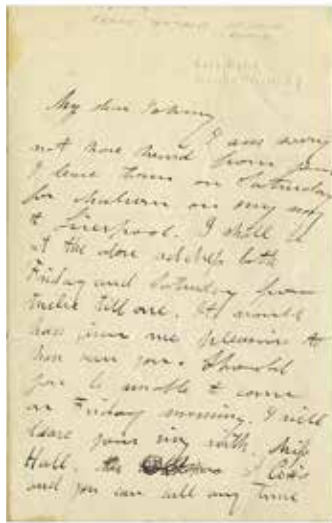 My dear Johnny
I am sorry
not have heard from you
I leave town on Saturday
for Malvern on my way
to Liverpool. I shall be
at the above address both
Friday and Saturday from
twelve till one. It would
have given me pleasure to
have seen you. Should
you be unable to come
on Friday morning. I will
leave your ring with Miss
Hall. at Cox's
and you can call any time